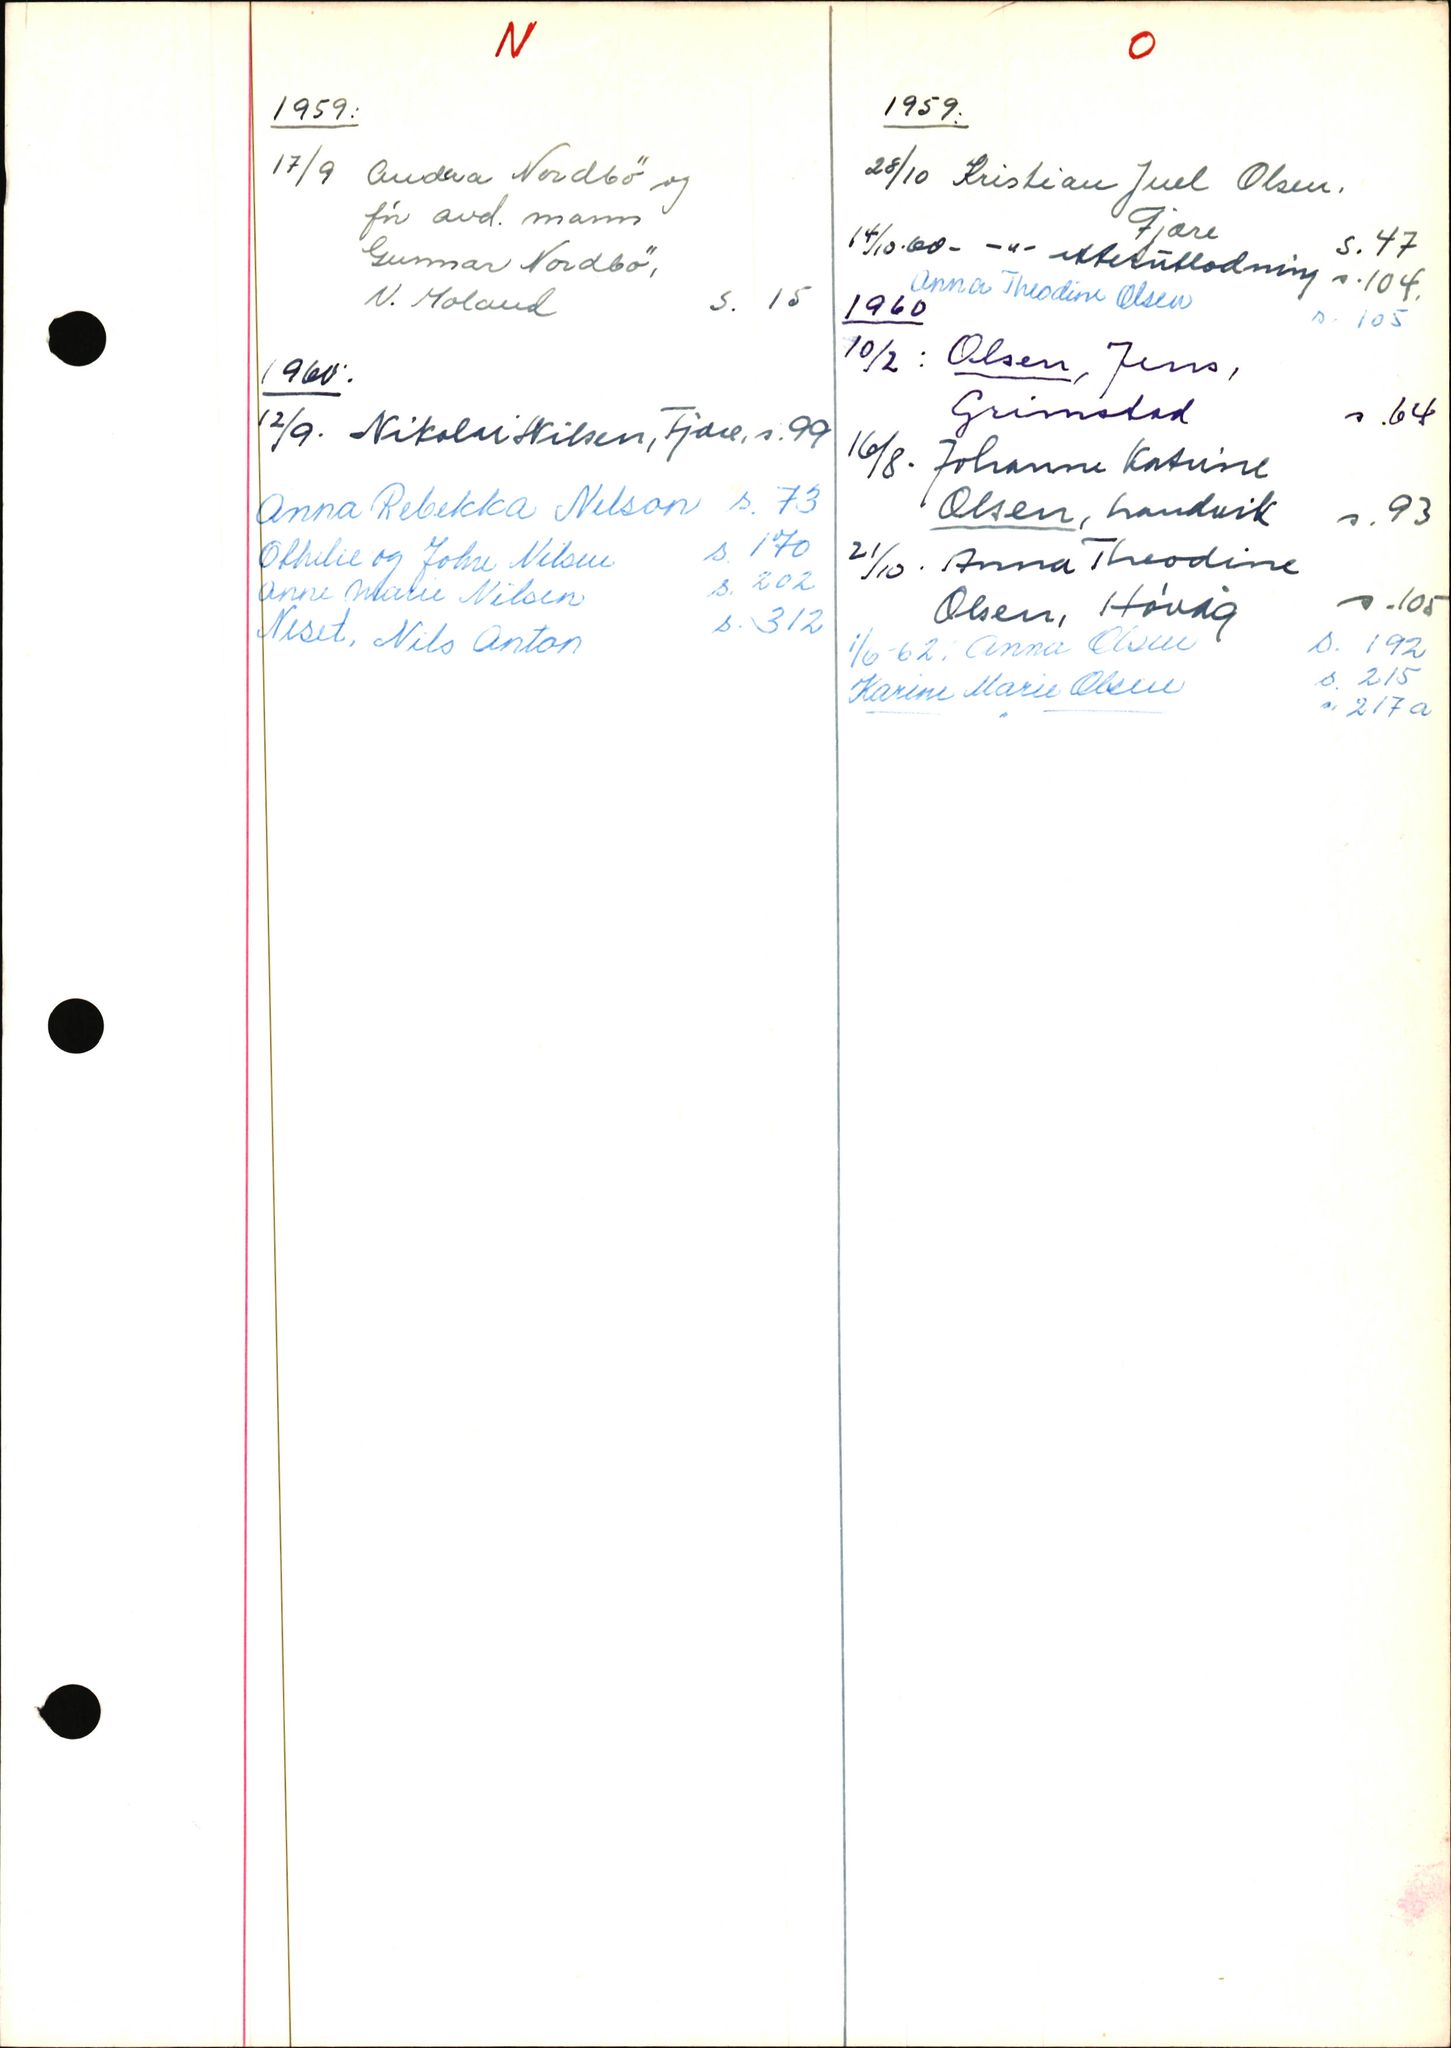 N
1959:
17/9 Andrea Nordbö og
för avd. mann
Gunnar Nordbö,
N. Moland s. 15
1960.
12/9. Nikolai Nilsen, Fjære, s. 99
Anna Rebekka Nelson s. 73
Othilie og John Nilsen s. 170
Anne Marie Nilsen s. 202
Neset, Nils Anton s. 312
O
1959:
28/10 Kristian Juel Olsen,
Fjære s. 47
14/10-60- -"- etterutlodning s. 104.
Anna Theodine Olsen s. 105
1960
10/2: Olsen, Jens,
Grimstad s. 64
16/8. Johanne Katrine
Olsen, Landvik s. 93
21/10. Anna Theodine
Olsen, Høvåg s. 105
1/6-62: Anna Olsen s. 192
Karine Marie Olsen s. 215
" s. 217a